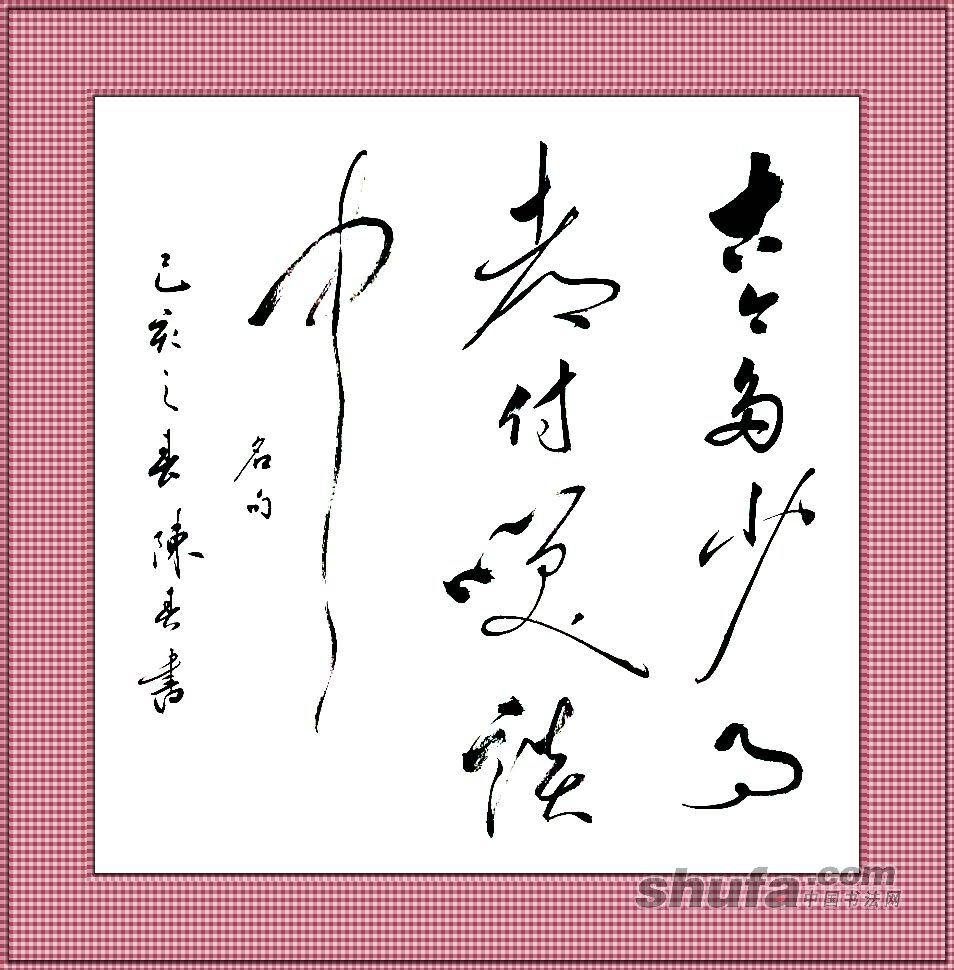 古今多少事
都付笑談
中
名句
己亥之春陳春書
shufa.com
中国书法网